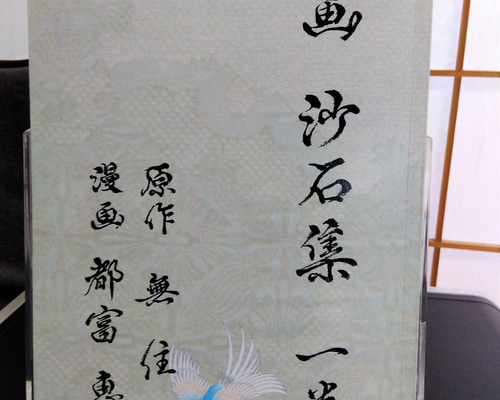 画 沙石集 一
原作 無住
漫画 都富 恵